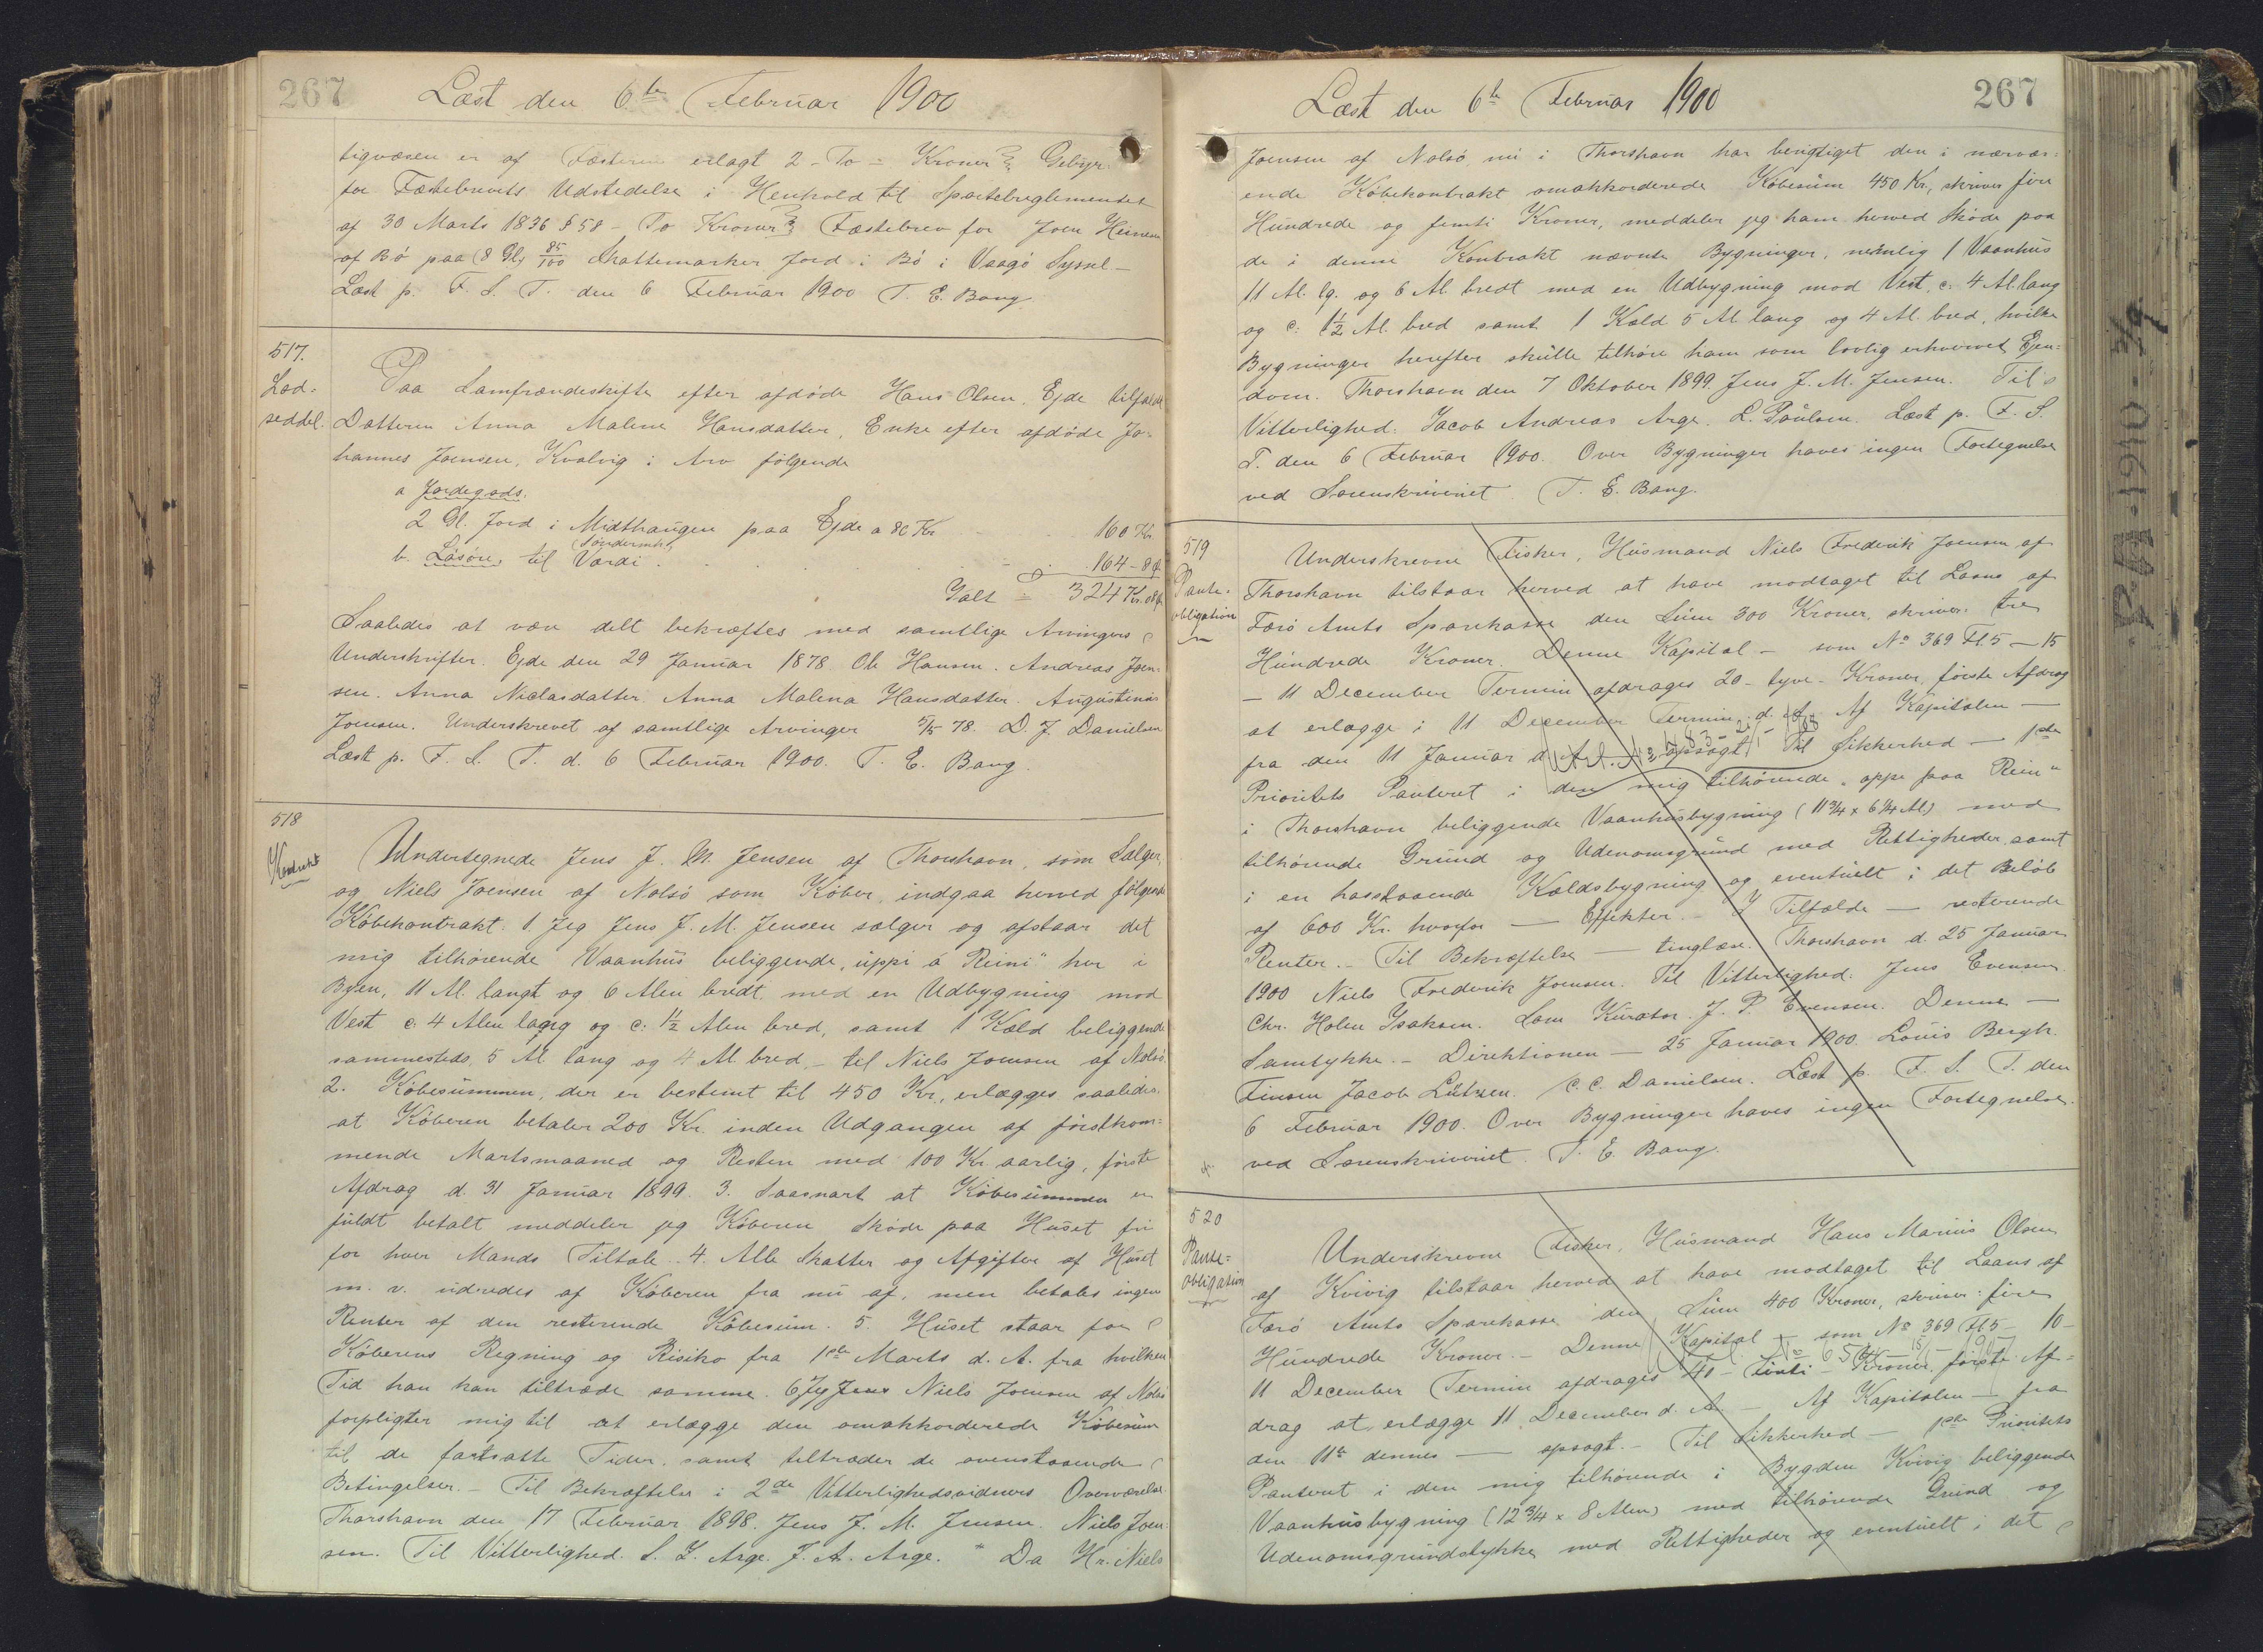 267
Læst den 6te Februar 1900
tigvæsen er af Fæsteren erlagt 2 - To - Kroner Gebyr
for Fæstebrevets Udstedelse i Henhold til Sportelreglementet
af 30 Marts 1836 § 58 - To Kroner Fæstebrev for Joen Heinesen
af Bø paa (8 Gl) 85/100 Skattemarker Jord i Bø i Vaagø Syssel -
Læst p. F. S. T. den 6 Februar 1900 T. E. Bang.
517.
Lod-
seddel.
Paa Samfrændeskifte efter afdøde Hans Olsen, Ejde tilfaldt
Datteren Anna Malene Hansdatter, Enke efter afdøde Jo-
hannes Joensen, Kvalvig i Arv følgende
a Jordegods.
2 Gl. Jord i Midthaugen paa Ejde a 80 Kr - 160 Kr.
b. Løsøre, til Værdi . . . . 164 - 8 Ø.
Ialt = 324 Kr. 08 Ø
Saaledes at være delt bekræftes med samtlige Arvingers
Underskrifter. Ejde den 29 Januar 1878 Ole Hansen. Andreas Joen-
sen. Anna Niclasdatter. Anna Malena Hansdatter. Augustinus
Joensen. Underskrevet af samtlige Arvinger 5/5 78. D. J. Danielsen
Læst p. F. S. T. d. 6 Februar 1900. T. E. Bang.
518
Kontrakt
Undertegnede Jens J. M. Jensen af Thorshavn, som Sælger,
og Niels Joensen af Nolsø som Køber, indgaa herved følgende
Købekontrakt. 1. Jeg Jens J. M. Jensen sælger og afstaar det
mig tilhørende Vaanhus beliggende "uppi á Reini" her i
Byen, 11 Al. langt og 6 Alen bredt med en Udbygning mod
Vest c. 4 Alen lang og c: 1½ Alen bred, samt 1 Kæld beliggende
sammesteds, 5 Al lang og 4 Al. bred, - til Niels Joensen af Nolsø.
2. Købesummen, der er bestemt til 450 Kr., erlægges saaledes,
at Køberen betaler 200 Kr. inden Udgangen af førstkom=
mende Martsmaaned og Resten med 100 Kr aarlig, første
Afdrag d. 31 Januar 1899. 3. Saasnart at Købesummen er
fuldt betalt meddeler jeg Køberen Skøde paa Huset fri
for hver Mands Tiltale. 4. Alle Skatter og Afgifter af Huset
m. v. udredes af Køberen fra nu af, men betales ingen
Renter af den resterende Købesum. 5. Huset staar for
Køberens Regning og Risiko fra 1ste Marts d. A. fra hvilken
Tid han kan tiltræde samme. 6 Jeg Jens Niels Joensen af Nolsø
forpligter mig til at erlægge den omakkorderede Købesum
til de fastsatte Tider, samt tiltræder de ovenstaaende
Betingelser. - Til Bekræftelse i 2de Vitterlighedsvidners Overværelse.
Thorshavn den 17 Februar 1898. Jens J. M. Jensen. Niels Joen-
sen. Til Vitterlighed. S. Z. Arge. J. A. Arge. * Da Hr. Niels
267
Læst den 6te Februar 1900
Joensen af Nolsø, nu i Thorshavn har berigtiget den i nærvær=
ende Købekontrakt omakkorderede Købesum 450 Kr., skriver fire
Hundrede og femti Kroner, meddeler jeg ham herved Skøde paa
de i denne Kontrakt nævnte Bygninger, nemlig 1 Vaanhus
11 Al. lg. og 6 Al bredt med en Udbygning mod Vest, c. 4 Al. lang
og c: 1½ Al. bred samt 1 Kæld 5 Al lang og 4 Al. bred, hvilke
Bygninger herefter skulle tilhøre ham som lovlig erhvervet Ejen=
dom. Thorshavn den 7 Oktober 1899. Jens J. M. Jensen. Til
Vitterlighed. Jacob Andreas Arge. L. Poulsen. Læst p. F. S.
T. den 6 Februar 1900. Over Bygninger haves ingen Fortegnelse
ved Sorenskriveriet. T. E. Bang.
519
Pante-
obligation
Underskrevne Fisker, Husmand Niels Frederik Joensen af
Thorshavn tilstaar herved at have modtaget til Laans af
Færø Amts Sparekasse den Sum 300 Kroner, skriver: tre
Hundrede Kroner. Denne Kapital - som No 369 Fl. 5 - 15
- 11 December Termin afdrages 20 - tyve - Kroner, første Afdrag
at erlægge i 11 December Termin d. A. Af Kapitalen -
fra den 11 Januar d. A. - opsagt. Til Sikkerhed - 1ste
Prioritets Panteret i den mig tilhørende "oppe paa Rein"
i Thorshavn beliggende Vaanhusbygning (11¾ x 6¼ Al) med
tilhørende Grund og Udenomsgrund med Rettigheder samt
i en hosstaaende Kældsbygning og eventuelt i det Beløb
af 600 Kr. hvorfor - Effekter. - I Tilfælde - resterende
Renter. - Til Bekræftelse - tinglæse. Thorshavn d. 25 Januar
1900 Niels Frederik Joensen. Til Vitterlighed: Jens Evensen
Chr. Holm Isaksen. Som Kurator. J. P. Evensen. Denne -
Samtykke. - Direktionen - 25 Januar 1900. Louis Bergh.
Finsen Jacob Lützen. C. C. Danielsen. Læst p. F. S. T. den
6 Februar 1900. Over Bygninger haves ingen Fortegnelse
ved Sorenskriveriet. T. E. Bang.
520
Pante=
obligation
Underskrevne Fisker, Husmand Hans Marius Olsen
af Kvivig tilstaar herved at have modtaget til Laans af
Færø Amts Sparekasse den Sum 400 Kroner, skriver: fire
Hundrede Kroner. - Denne Kapital - som No 369 Fl. 5 - 10 -
11 December Termin afdrages 40 - - Kroner, første Af=
drag at erlægge 11 December d. A. - Af Kapitalen - fra
den 11te dennes - opsagt. - Til Sikkerhed - 1ste Prioritets
Panteret i den mig tilhørende i Bygden Kvivig beliggende
Vaanhusbygning (12¾ x 8 Alen) med tilhørende Grund og
Udenomsgrundstykke med Rettigheder og eventuelt i det